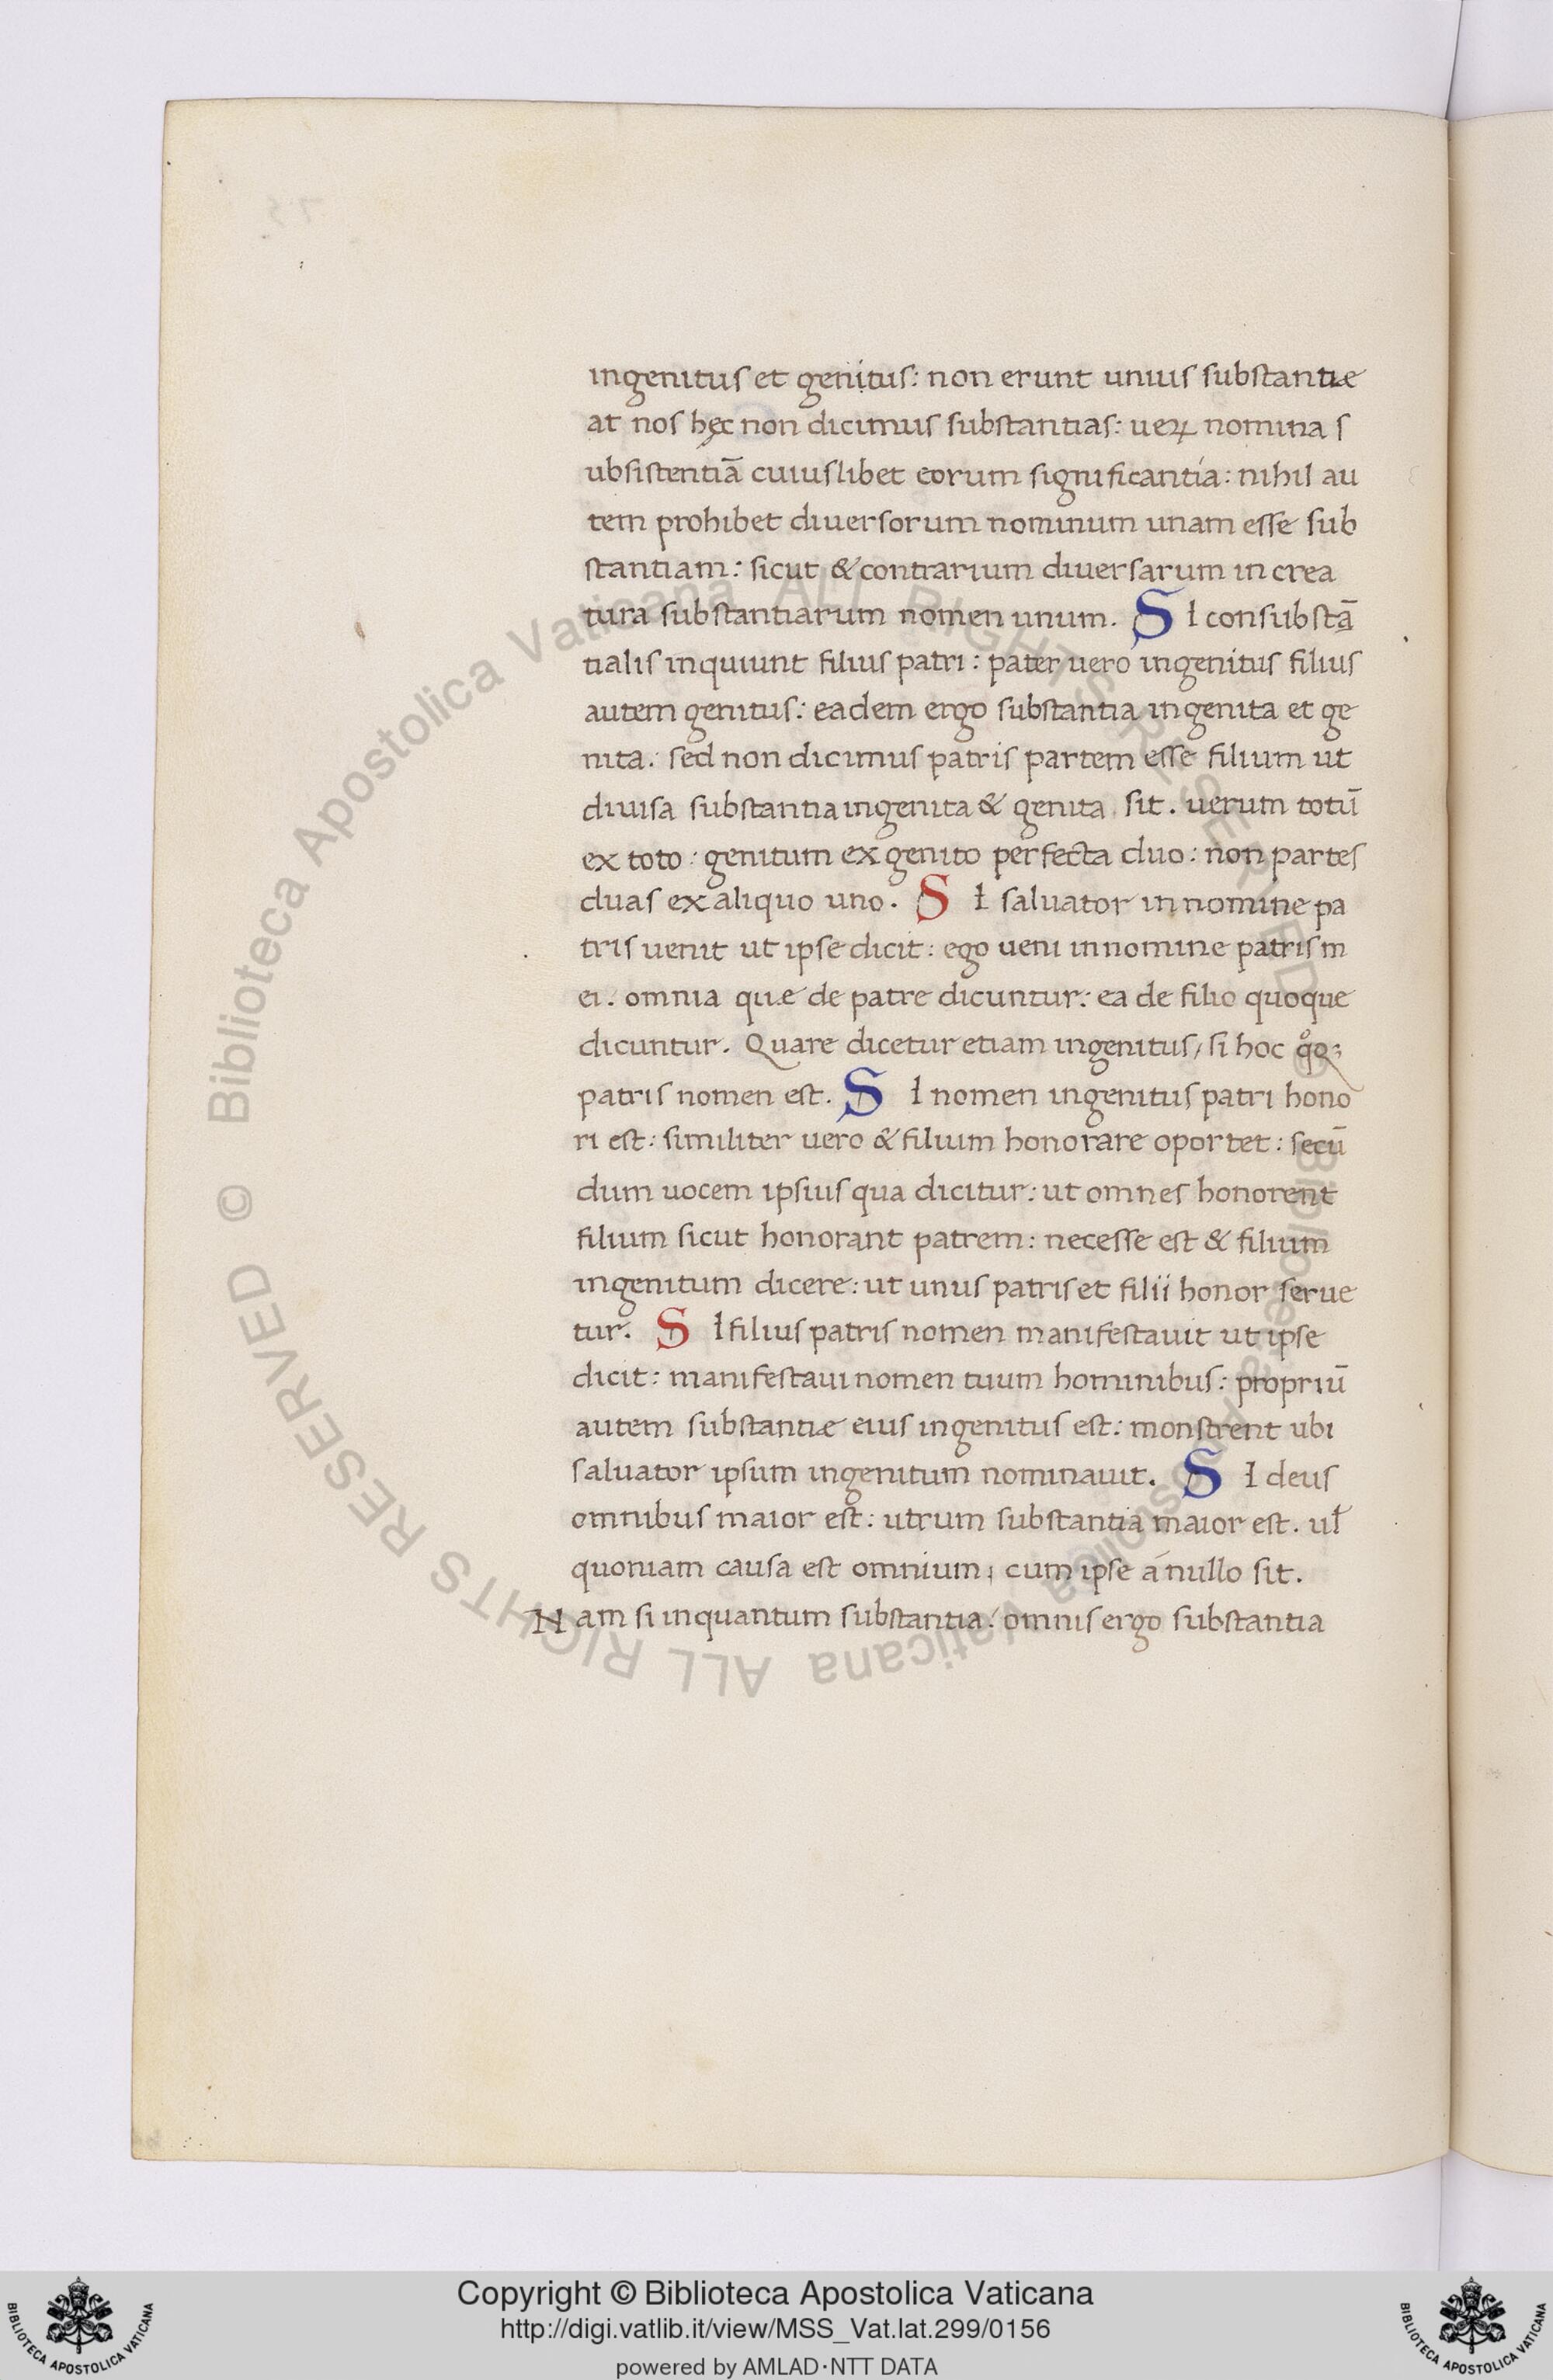 ingenitus et genitus: non erunt unius substantiæ
at nos hęc non dicimus substantias: ueꝝ nomina s
ubsistentiā cuiuslibet eorum significantia: nihil au
tem prohibet diuersorum nominum unam esse sub
stantiam: sicut & contrarium diuersarum in crea
tura substantiarum nomen unum. SI consubstā
tialis inquiunt filius patri: pater uero ingenitus filius
autem genitus: eadem ergo substantia ingenita et ge
nita: sed non dicimus patris partem esse filium ut
diuisa substantia ingenita & genita sit. uerum totū
ex toto: genitum ex genito perfecta duo: non partes
duas ex aliquo uno. SI saluator in nomine pa
tris uenit ut ipse dicit: ego ueni in nomine patris m
ei. omnia quæ de patre dicuntur: ea de filio quoque
dicuntur. Quare dicetur etiam ingenitus, si hoc
patris nomen est. SI nomen ingenitus patri hono
ri est: similiter uero & filium honorare oportet: secū
dum uocem ipsius qua dicitur: ut omnes honorent
filium sicut honorant patrem: necesse est & filium
ingenitum dicere: ut unus patris et filii honor serue
tur. SI filius patris nomen manifestauit ut ipse
dicit: manifestaui nomen tuum hominibus: propriū
autem substantiæ eius ingenitus est: monstrent ubi
saluator ipsum ingenitum nominauit. SI deus
omnibus maior est: utrum substantia maior est. uł
quoniam causa est omnium; cum ipse á nullo sit.
Nam si inquantum substantia: omnis ergo substantia
© Biblioteca Apostolica Vaticana ALL RIGHTS RESERVED © Biblioteca Apostolica Vaticana ALL RIGHTS RESERVED
Copyright © Biblioteca Apostolica Vaticana
http://digi.vatlib.it/view/MSS_Vat.lat.299/0156
powered by AMLAD·NTT DATA
BIBLIOTECA APOSTOLICA VATICANA
BIBLIOTECA APOSTOLICA VATICANA